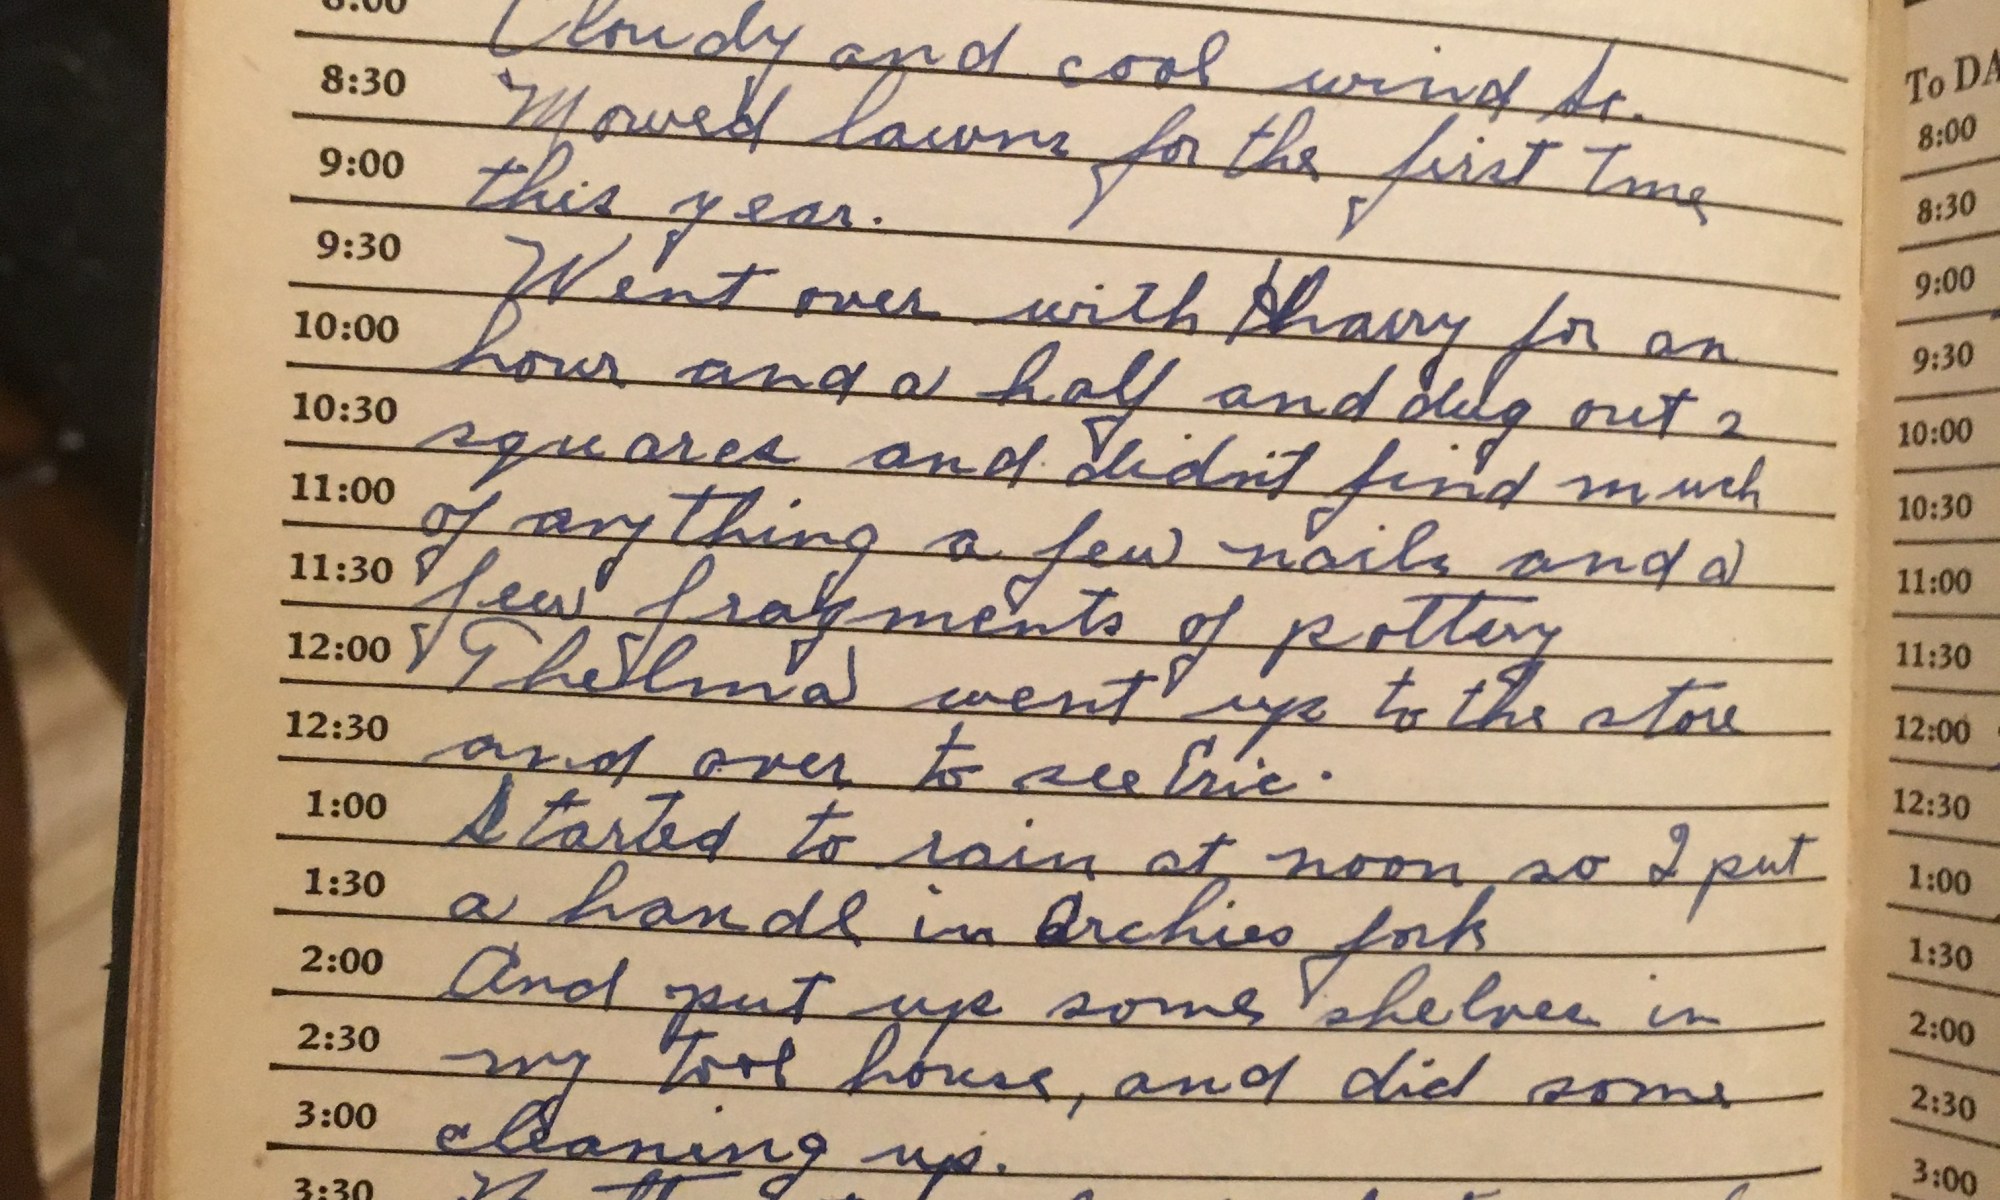 8:00 Cloudy and cool wind So.
8:30 Mowed lawns for the first Tme
9:00 this year.
9:30 Went over with Harry for an
10:00 hour and a half and dug out 2
10:30 squares and didn't find much
11:00 of anything a few nails and a
11:30 few fragments of pottery
12:00 Thelma went up to the store
12:30 and over to see Eric.
1:00 Started to rain at noon so I put
1:30 a handl in Archies fork
2:00 And put up some shelves in
2:30 my tool house, and did some
3:00 cleaning up.
3:30
To DA
8:00
8:30
9:00
9:30
10:00
10:30
11:00
11:30
12:00
12:30
1:00
1:30
2:00
2:30
3:00